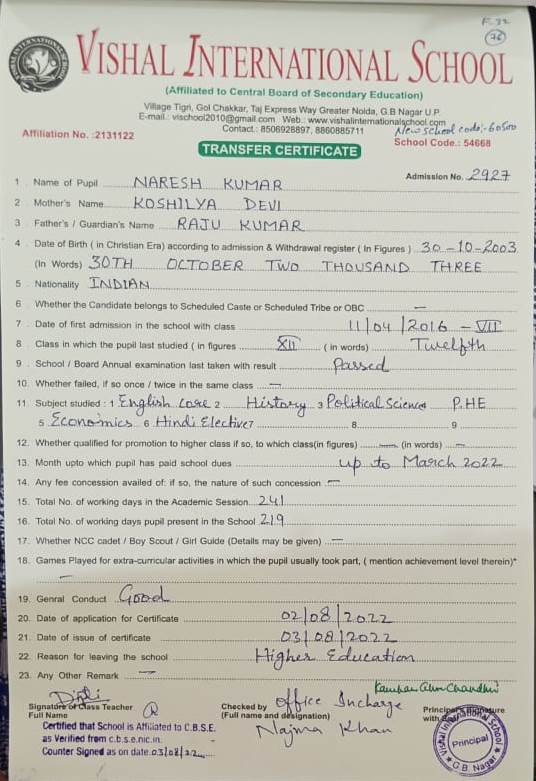 F-32
76
VISHAL INTERNATIONAL SCHOOL
(Affiliated to Central Board of Secondary Education)
Village Tigri, Gol Chakkar, Taj Express Way Greater Noida, G.B Nagar U.P.
E-mail.: vischool2010@gmail.com Web.: www.vishalinternationalschool.com
Contact.: 8506928897, 8860885711
New school code:- 60500
Affiliation No. :2131122
School Code.: 54668
TRANSFER CERTIFICATE
Admission No. 2927
1 . Name of Pupil NARESH KUMAR
2 Mother's Name KOSHILYA DEVI
3 Father's / Guardian's Name RAJU KUMAR
4 . Date of Birth ( in Christian Era) according to admission & Withdrawal register ( In Figures ) 30-10-2003
(In Words) 30TH OCTOBER TWO THOUSAND THREE
5 . Nationality INDIAN
6 . Whether the Candidate belongs to Scheduled Caste or Scheduled Tribe or OBC —
7 . Date of first admission in the school with class 11/04/2016 - VII
8 . Class in which the pupil last studied ( in figures XII ( in words) Twelfth
9 . School / Board Annual examination last taken with result Passed
10. Whether failed, if so once / twice in the same class —
11. Subject studied : 1 English Core 2 History 3 Political Science P.HE
5 Economics 6 Hindi Elective 7 8 9
12. Whether qualified for promotion to higher class if so, to which class(in figures) — (in words) —
13. Month upto which pupil has paid school dues up to March 2022
14. Any fee concession availed of: if so, the nature of such concession —
15. Total No. of working days in the Academic Session 241
16. Total No. of working days pupil present in the School 219
17. Whether NCC cadet / Boy Scout / Girl Guide (Details may be given) —
18. Games Played for extra-curricular activities in which the pupil usually took part, ( mention achievement level therein)*
—
19. Genral Conduct Good
20. Date of application for Certificate 02/08/2022
21. Date of issue of certificate 03/08/2022
22. Reason for leaving the school Higher Education
23. Any Other Remark —
Dipti
Signature of Class Teacher
Full Name
Checked by Office Incharge
(Full name and designation) Najma Khan
Principal's Signature
with
Certified that School is Affiliated to C.B.S.E.
as Verified from c.b.s.e.nic.in.
Counter Signed as on date 03/08/22
Vishal International School
Principal
G.B. Nagar